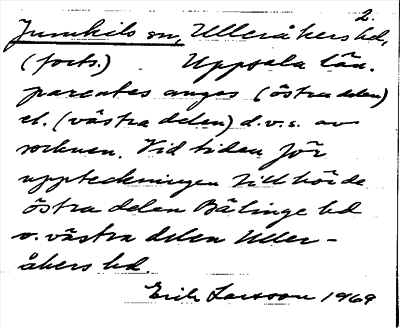 2.
Jumkils sn, Ulleråkers hd,
(forts.) Uppsala län.
parentes anges (östra delen)
el. (västra delen) d.v.s. av
socknen. Vid tiden för
uppteckningen tillhörde
östra delen Bälinge hd
o. västra delen Uller-
åkers hd.
Erik Larsson 1969